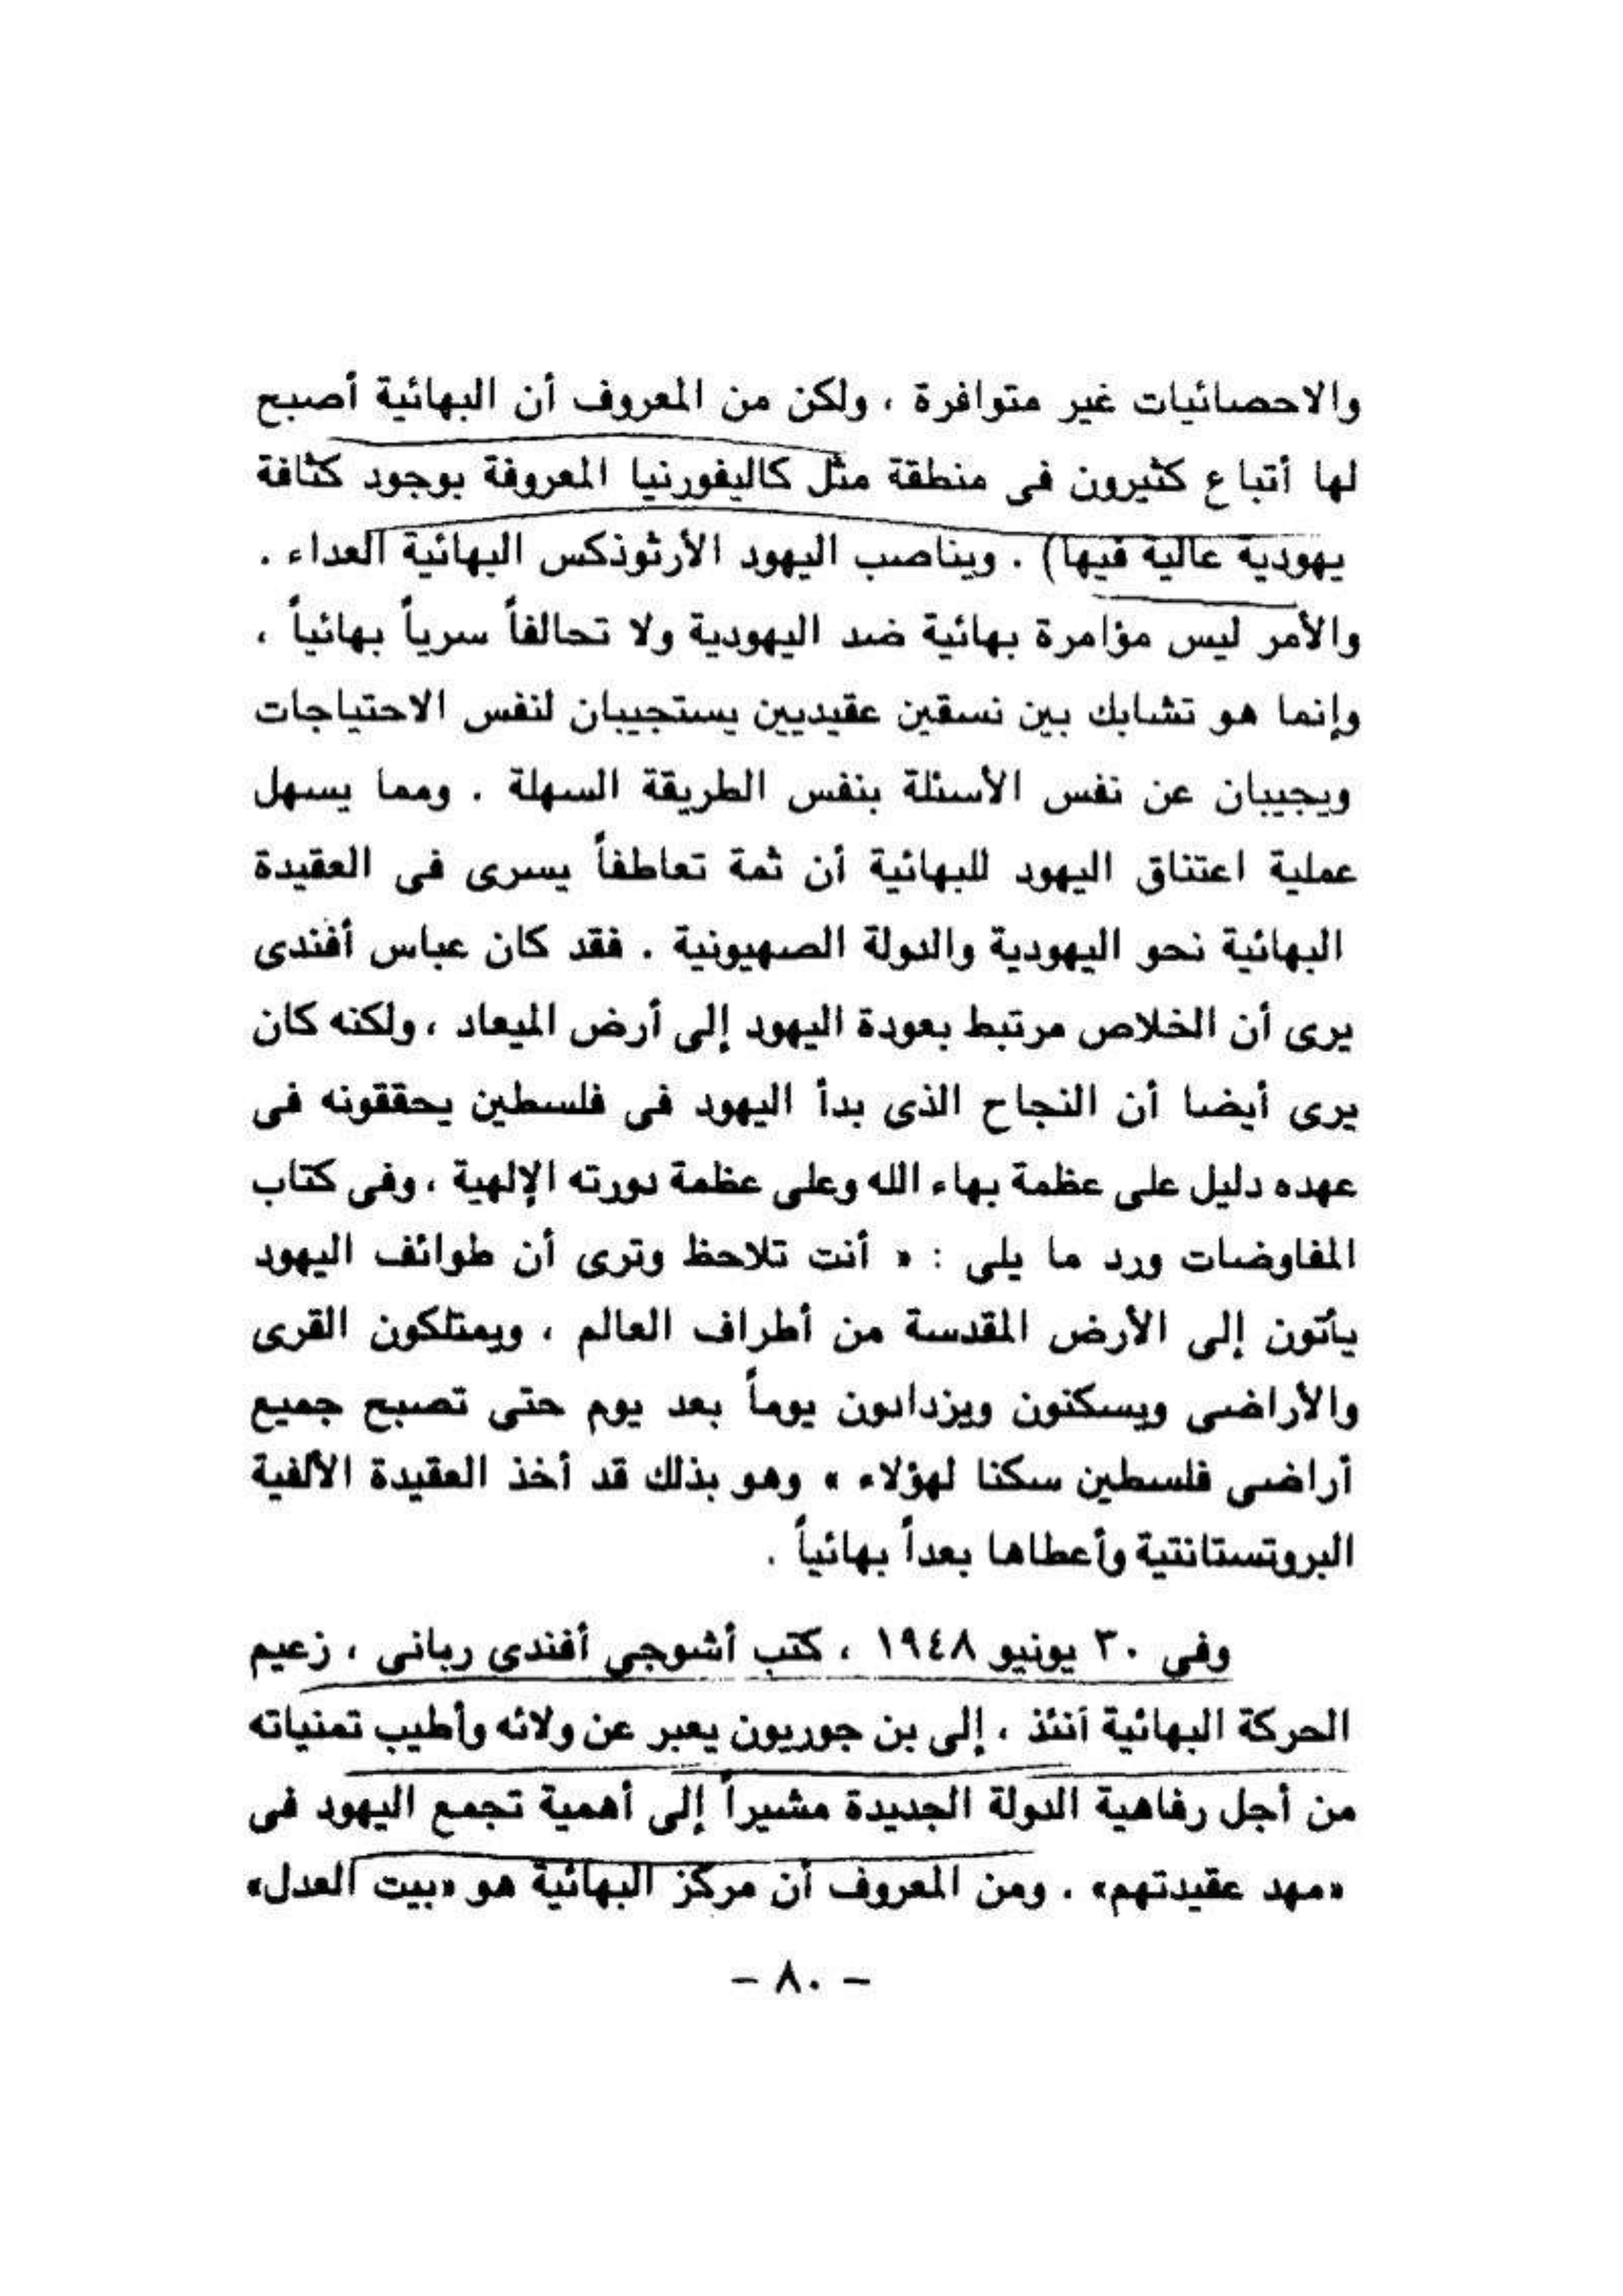 والاحصائيات غير متوافرة ، ولكن من المعروف أن البهائية أصبح
لها أتباع كثيرون فى منطقة مثل كاليفورنيا المعروفة بوجود كثافة
يهودية عالية فيها) . ويناصب اليهود الأرثوذكس البهائية العداء .
والأمر ليس مؤامرة بهائية ضد اليهودية ولا تحالفاً سرياً بهائياً ،
وإنما هو تشابك بين نسقين عقيديين يستجيبان لنفس الاحتياجات
ويجيبان عن نفس الأسئلة بنفس الطريقة السهلة . ومما يسهل
عملية اعتناق اليهود للبهائية أن ثمة تعاطفاً يسرى فى العقيدة
البهائية نحو اليهودية والدولة الصهيونية . فقد كان عباس أفندى
يرى أن الخلاص مرتبط بعودة اليهود إلى أرض الميعاد ، ولكنه كان
يرى أيضا أن النجاح الذى بدأ اليهود فى فلسطين يحققونه فى
عهده دليل على عظمة بهاء الله وعلى عظمة دورته الإلهية ، وفى كتاب
المفاوضات ورد ما يلى : « أنت تلاحظ وترى أن طوائف اليهود
يأتون إلى الأرض المقدسة من أطراف العالم ، ويمتلكون القرى
والأراضى ويسكنون ويزدادون يوماً بعد يوم حتى تصبح جميع
أراضى فلسطين سكنا لهؤلاء » وهو بذلك قد أخذ العقيدة الألفية
البروتستانتية وأعطاها بعداً بهائياً .
وفى ٣٠ يونيو ١٩٤٨ ، كتب أشوجى أفندى ربانى ، زعيم
الحركة البهائية آنئذ ، إلى بن جوريون يعبر عن ولائه وأطيب تمنياته
من أجل رفاهية الدولة الجديدة مشيراً إلى أهمية تجمع اليهود فى
«مهد عقيدتهم» . ومن المعروف أن مركز البهائية هو «بيت العدل»
– ٨٠ –